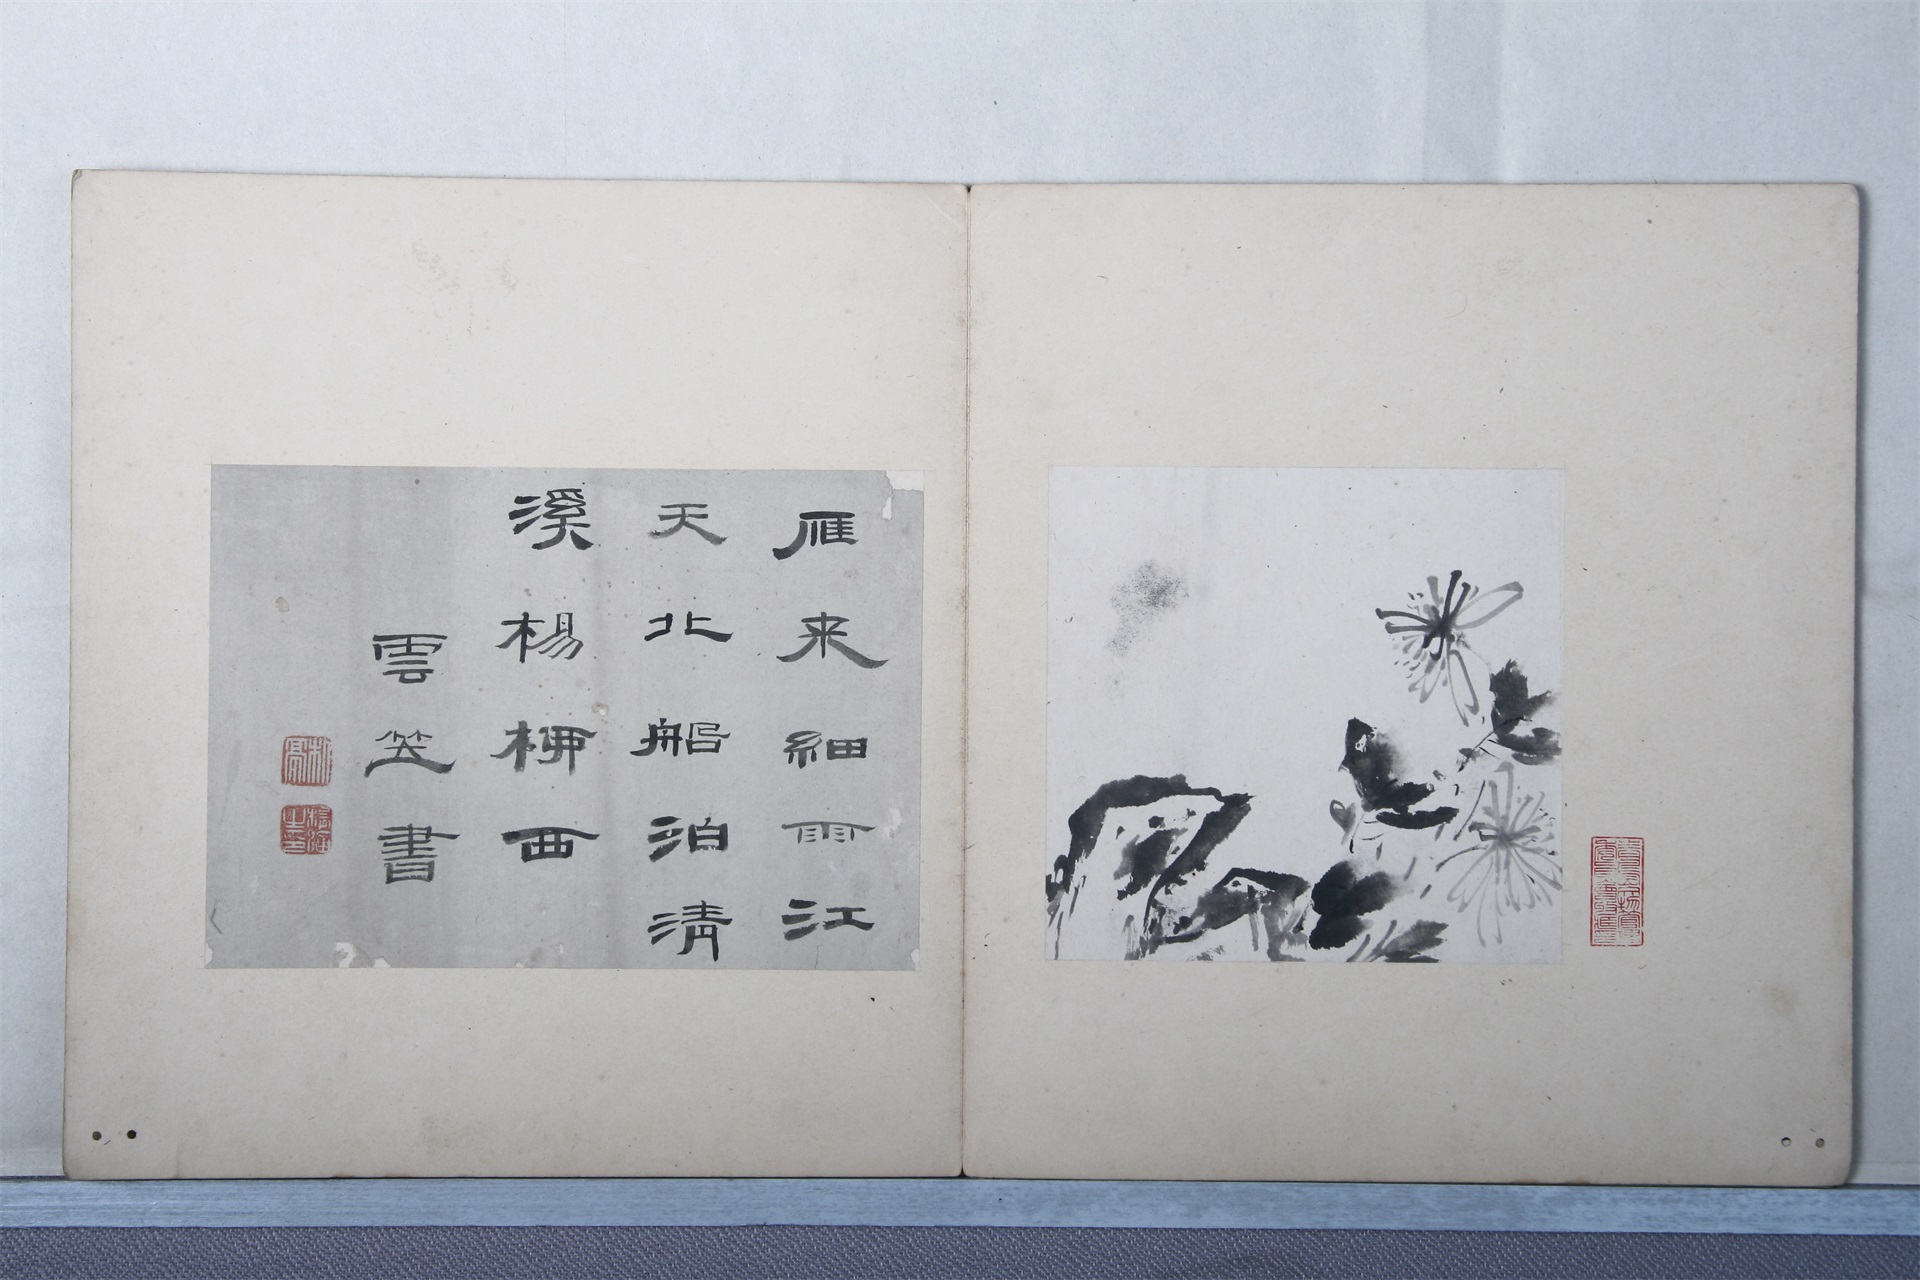 雁来細雨江
天北船泊清
溪楊柳西
雲笠書